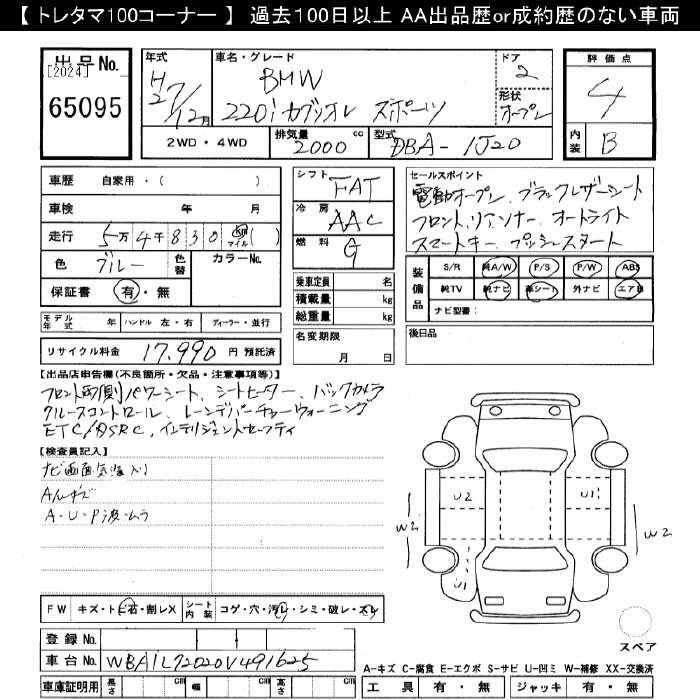 【 トレタマ100コーナー 】 過去100日以上 AA出品歴or成約歴のない車両
出品No.
[2024]
65095
年式
H27/12月
車名・グレード
BMW
220i カブリオレ スポーツ
ドア
2
形状
オープン
評価点
4
内装
B
2WD・4WD
排気量
2000 cc
型式
DBA-1J20
車歴 自家用・( )
車検 年 月
走行 5万4千830 km マイル ( )
色 ブルー 色替 カラーNo.
保証書 有・無
シフト FAT
冷房 AAC
燃料 G
乗車定員 名
積載量 kg
総重量 kg
名変期限
月 日
セールスポイント
電動オープン、ブラックレザーシート
フロント、リアソナー、オートライト
スマートキー、プッシュスタート
装備品
S/R 純A/W P/S P/W ABS
純TV 純ナビ 革シート 外ナビ エアB
ナビ型番:
後日品
モデル年式 年 ハンドル 左・右 ディーラー・並行
リサイクル料金 17,990 円 預託済
【出品店申告欄(不良箇所・欠品・注意事項等)】
フロント両側パワーシート、シートヒーター、バックカメラ
クルーズコントロール、レーンデパーチャーウォーニング
ETC/DSRC、インテリジェントセーフティ
【検査員記入】
ナビ画面気泡入り
Aルーキズ
A・U・P波・ムラ
U2
U1
W2
W2
U1
FW キズ・トビ石・割レX
シート内装 コゲ・穴・汚レ・シミ・破レ・スレ
登録No.
車台No. WBA1L72020V491625
車庫証明用 長さ cm 幅 cm 高さ cm
スペア
A-キズ C-腐食 E-エクボ S-サビ U-凹ミ W-補修 XX-交換済
工具 有・無 ジャッキ 有・無